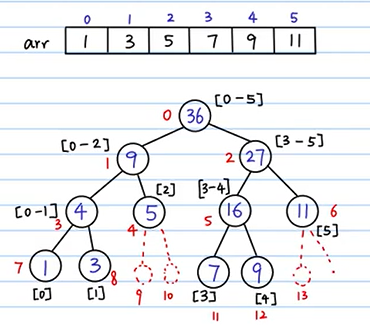 0 1 2 3 4 5
arr 1 3 5 7 9 11
0 36 [0-5]
[0-2] 1 9 2 27 [3-5]
[0-1] 3 4 4 5 [2] [3-4] 5 16 11 6 [5]
7 1 [0] 3 8 [1] 9 10 7 [3] 11 9 [4] 12 13